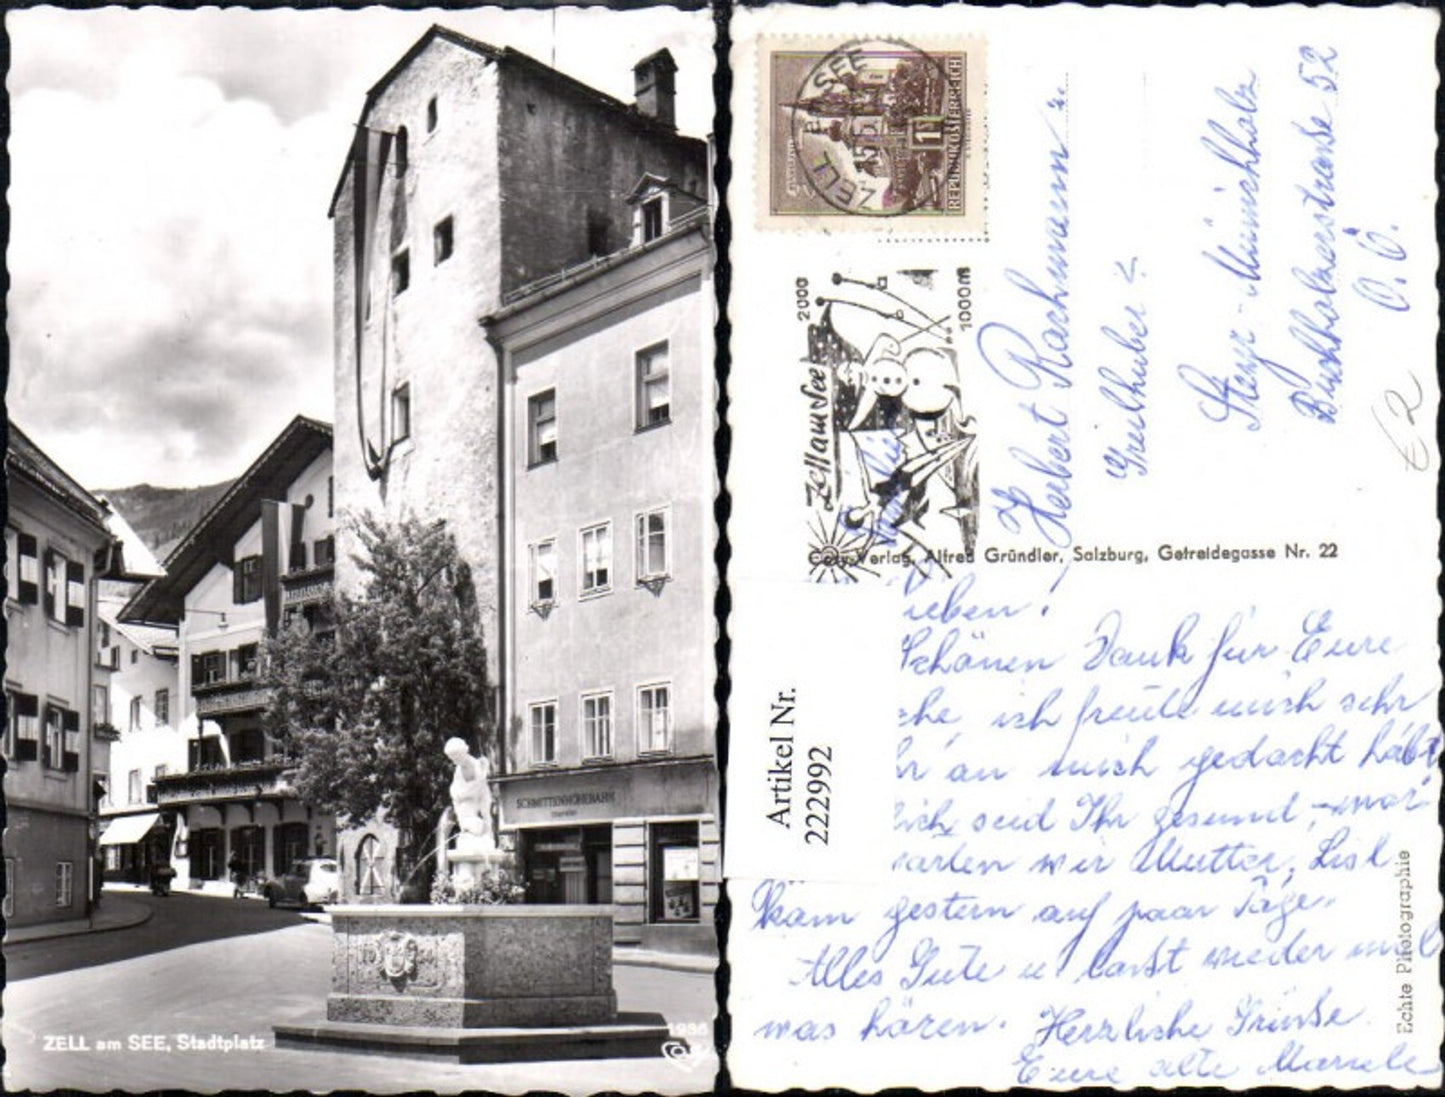 SCHMITTENHÖHEBAHN
ZELL am SEE, Stadtplatz
1986
ZELL
SEE
1
REPUBLIK ÖSTERREICH
2000
1000m
Zell am See
Herbert Rachmann
Greilhuber
Steyr - Münichholz
Buchholzerstraße 52
O. Ö.
€2
Cosy-Verlag, Alfred Gründler, Salzburg, Getreidegasse Nr. 22
Artikel Nr.
222992
ieben!
Schönen Dank für Eure
che, ich freute mich sehr
hr an mich gedacht habt
lich seid Ihr gesund,
arten wir Mutter, Lisl
kam gestern auf paar Tage.
Alles Gute u lasst wieder mal
was hören. Herzliche Grüsse
Eure alte
Echte Photographie